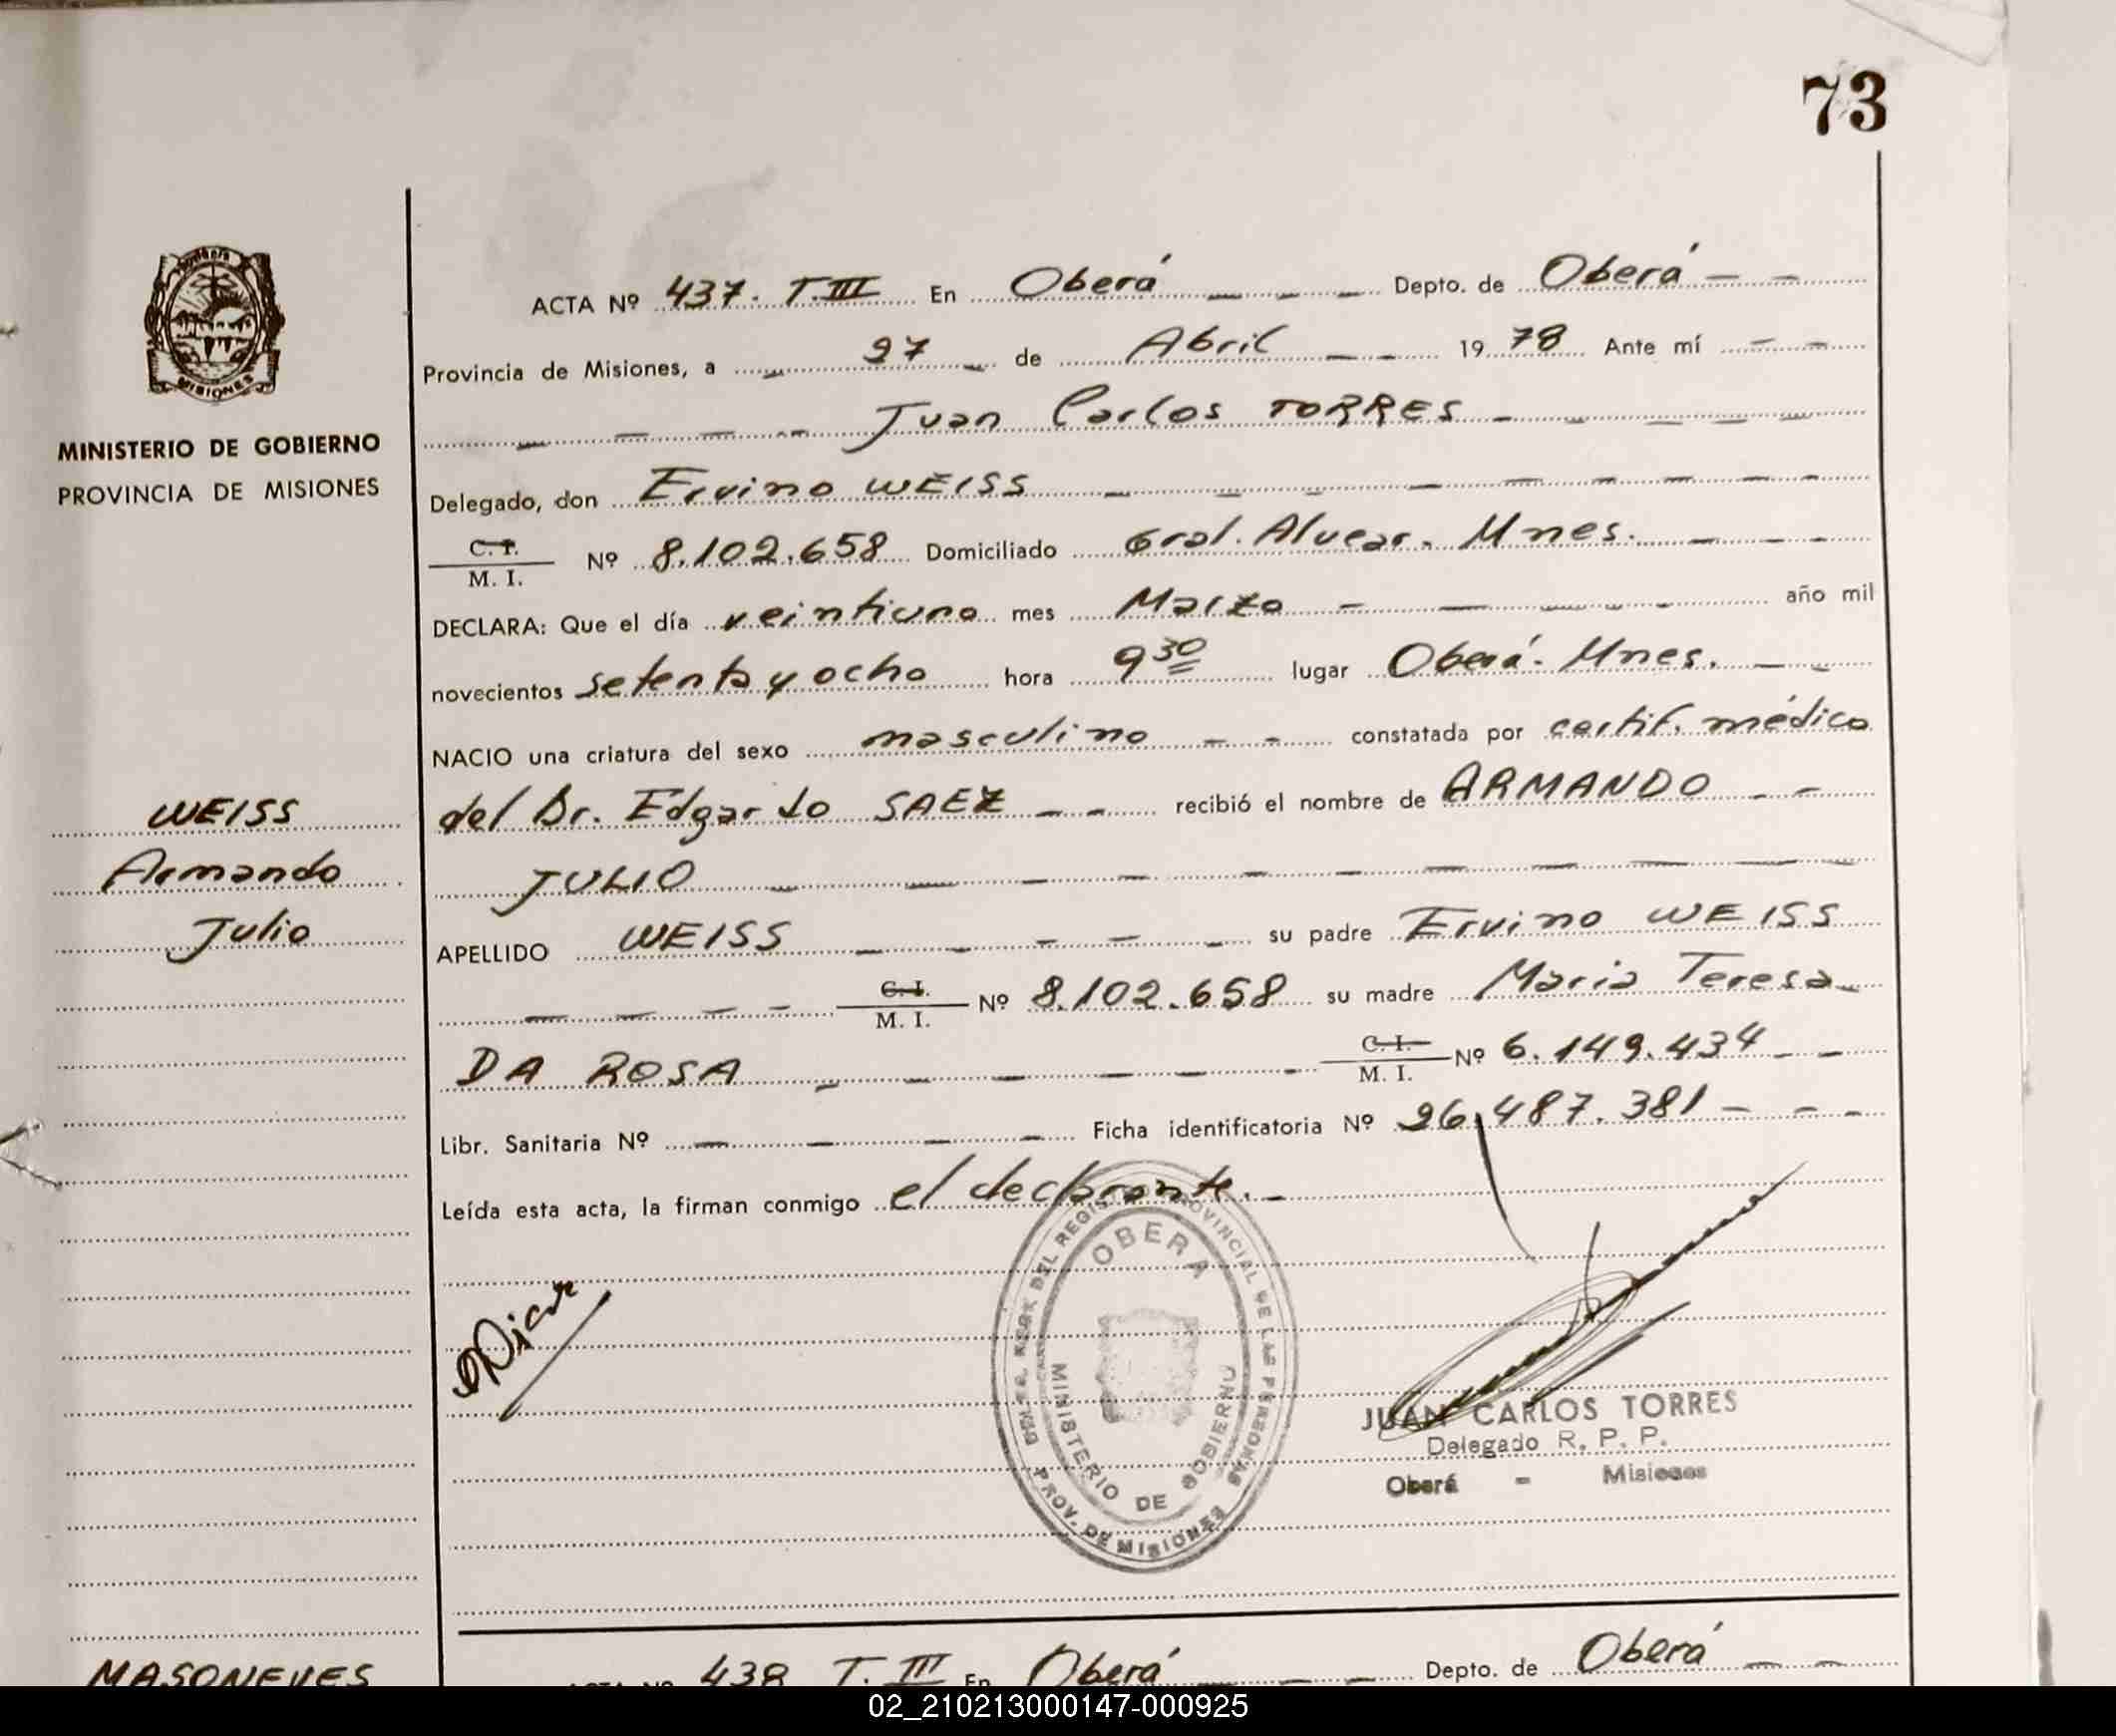 73
MISIONES
MINISTERIO DE GOBIERNO
PROVINCIA DE MISIONES
ACTA Nº 437. T.III En Oberá Depto. de Oberá
Provincia de Misiones, a 27 de Abril 1978 Ante mí
Juan Carlos TORRES
Delegado, don Ervino WEISS
C. I.
M. I. Nº 8.102.658 Domiciliado Gral. Alvear. Mnes.
DECLARA: Que el día veintiuno mes Marzo año mil
novecientos setenta y ocho hora 9 30 lugar Oberá. Mnes.
NACIO una criatura del sexo masculino constatada por certif. médico
del Dr. Edgardo SAEZ recibió el nombre de ARMANDO
JULIO
APELLIDO WEISS su padre Ervino WEISS
C. I.
M. I. Nº 8.102.658 su madre Maria Teresa
DA ROSA C. I.
M. I. Nº 6.149.434
Libr. Sanitaria Nº Ficha identificatoria Nº 26.487.381
Leída esta acta, la firman conmigo el declarante.
WEISS
Armando
Julio
OBERA
MINISTERIO DE GOBIERNO
PROV. DE MISIONES
JUAN CARLOS TORRES
Delegado R. P. P.
Oberá - Misiones
MASONEVES
ACTA Nº 438 T. III En Oberá Depto. de Oberá
02_210213000147-000925